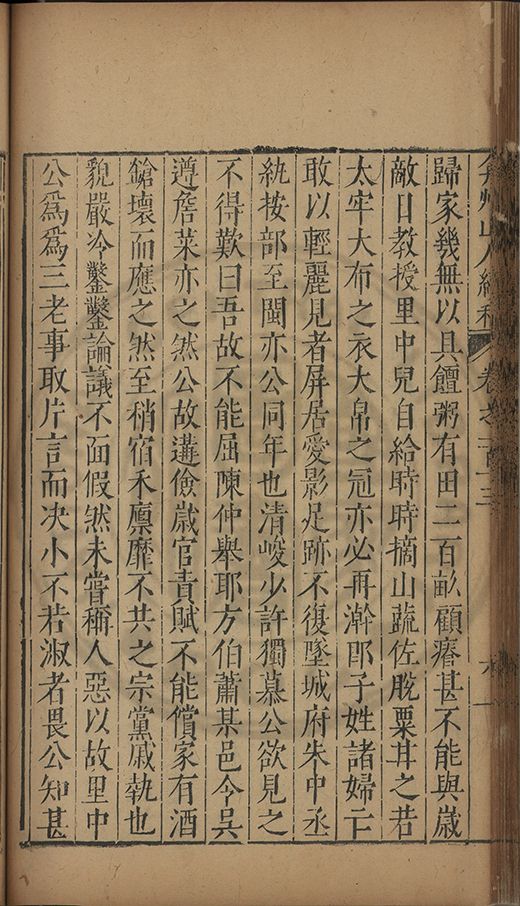 弇州山人續稿 卷之一百三
歸家幾無以具饘粥有田二百畝顧瘠甚不能與歲
敵日教授里中兒自給時時摘山蔬佐脫粟茸之若
太牢大布之衣大帛之冠亦必再澣即子姓諸婦亡
敢以輕麗見者屏居愛影足跡不復墜城府朱中丞
紈按部至閩亦公同年也清峻少許獨慕公欲見之
不得歎曰吾故不能屈陳仲舉耶方伯蕭某邑令吳
遵詹萊亦之然公故遘儉歲官責賦不能償家有酒
鎗壞而應之然至稍宿禾廪靡不共之宗黨戚執也
貌嚴冷鑿鑿論議不面假然未嘗稱人惡以故里中
公爲爲三老事取片言而决小不若淑者畏公知甚